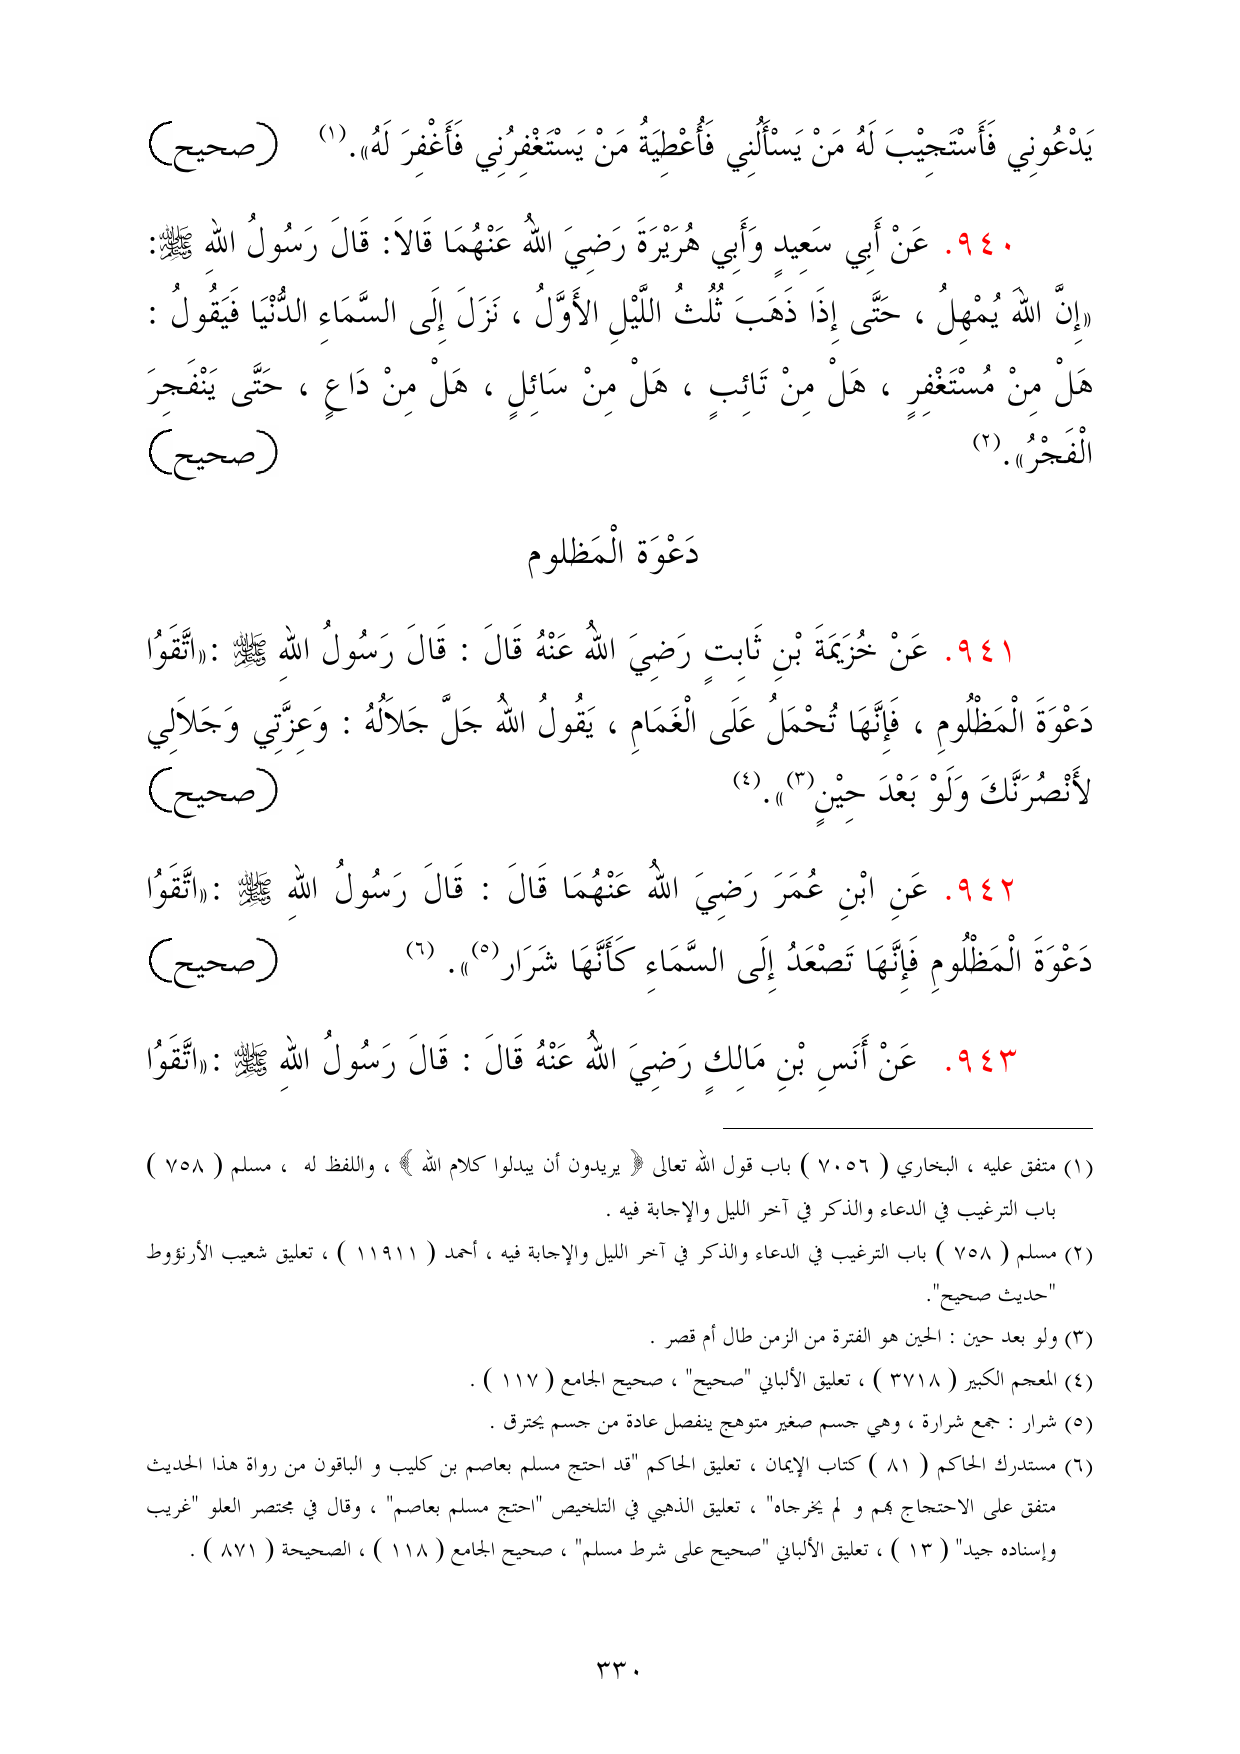 يَدْعُونِي فَأَسْتَجِيْبَ لَهُ مَنْ يَسْأَلُنِي فَأُعْطِيَهُ مَنْ يَسْتَغْفِرُنِي فَأَغْفِرَ لَهُ».(١) (صحيح)
٩٤٠. عَنْ أَبِي سَعِيدٍ وَأَبِي هُرَيْرَةَ رَضِيَ اللهُ عَنْهُمَا قَالاَ: قَالَ رَسُولُ اللهِ ﷺ:
«إِنَّ اللهَ يُمْهِلُ ، حَتَّى إِذَا ذَهَبَ ثُلُثُ اللَّيْلِ الأَوَّلُ ، نَزَلَ إِلَى السَّمَاءِ الدُّنْيَا فَيَقُولُ :
هَلْ مِنْ مُسْتَغْفِرٍ ، هَلْ مِنْ تَائِبٍ ، هَلْ مِنْ سَائِلٍ ، هَلْ مِنْ دَاعٍ ، حَتَّى يَنْفَجِرَ
الْفَجْرُ».(٢) (صحيح)
دَعْوَة الْمَظلوم
٩٤١. عَنْ خُزَيْمَةَ بْنِ ثَابِتٍ رَضِيَ اللهُ عَنْهُ قَالَ : قَالَ رَسُولُ اللهِ ﷺ :«اتَّقَوُا
دَعْوَةَ الْمَظْلُومِ ، فَإِنَّهَا تُحْمَلُ عَلَى الْغَمَامِ ، يَقُولُ اللهُ جَلَّ جَلاَلُهُ : وَعِزَّتِي وَجَلاَلِي
لأَنْصُرَنَّكَ وَلَوْ بَعْدَ حِيْنٍ(٣)».(٤) (صحيح)
٩٤٢. عَنِ ابْنِ عُمَرَ رَضِيَ اللهُ عَنْهُمَا قَالَ : قَالَ رَسُولُ اللهِ ﷺ :«اتَّقَوُا
دَعْوَةَ الْمَظْلُومِ فَإِنَّهَا تَصْعَدُ إِلَى السَّمَاءِ كَأَنَّهَا شَرَار(٥)». (٦) (صحيح)
٩٤٣. عَنْ أَنَسِ بْنِ مَالِكٍ رَضِيَ اللهُ عَنْهُ قَالَ : قَالَ رَسُولُ اللهِ ﷺ :«اتَّقَوُا
(١) متفق عليه ، البخاري ( ٧٠٥٦ ) باب قول الله تعالى ﴿ يريدون أن يبدلوا كلام الله ﴾ ، واللفظ له ، مسلم ( ٧٥٨ )
باب الترغيب في الدعاء والذكر في آخر الليل والإجابة فيه .
(٢) مسلم ( ٧٥٨ ) باب الترغيب في الدعاء والذكر في آخر الليل والإجابة فيه ، أحمد ( ١١٩١١ ) ، تعليق شعيب الأرنؤوط
"حديث صحيح".
(٣) ولو بعد حين : الحين هو الفترة من الزمن طال أم قصر .
(٤) المعجم الكبير ( ٣٧١٨ ) ، تعليق الألباني "صحيح" ، صحيح الجامع ( ١١٧ ) .
(٥) شرار : جمع شرارة ، وهي جسم صغير متوهج ينفصل عادة من جسم يحترق .
(٦) مستدرك الحاكم ( ٨١ ) كتاب الإيمان ، تعليق الحاكم "قد احتج مسلم بعاصم بن كليب و الباقون من رواة هذا الحديث
متفق على الاحتجاج بهم و لم يخرجاه" ، تعليق الذهبي في التلخيص "احتج مسلم بعاصم" ، وقال في مختصر العلو "غريب
وإسناده جيد" ( ١٣ ) ، تعليق الألباني "صحيح على شرط مسلم" ، صحيح الجامع ( ١١٨ ) ، الصحيحة ( ٨٧١ ) .
٣٣٠